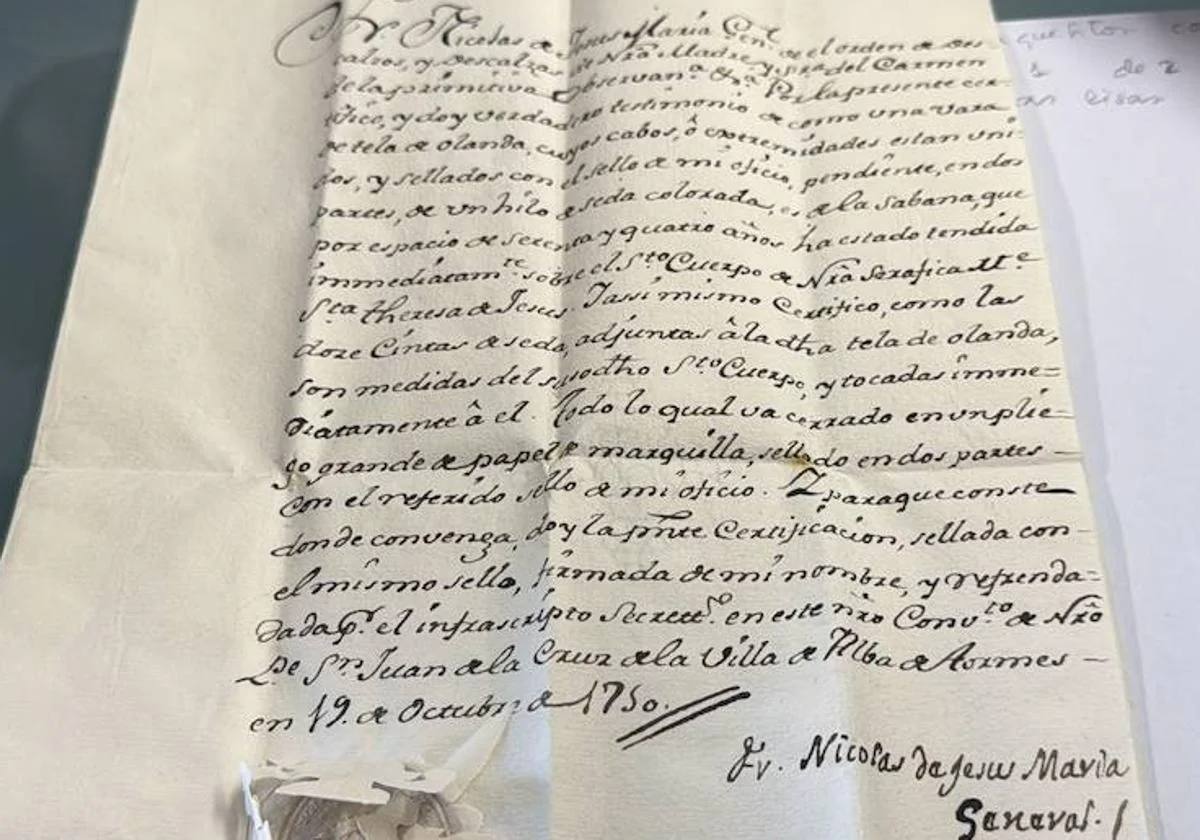 Fr. Nicolas de Jesus Maria Gen.l de el orden de Des
calzos, y Descalzas de Nrã Madre y Sra del Carmen
de la primitiva observan.a &.a Por la presente cer-
tifico, y doy verdadero testimonio de como una vara
de tela de olanda, cuyos cabos, ô extremidades estan uni-
dos, y sellados con el sello de mi oficio, pendiente, en dos
partes, de un hilo de seda colorada, es de la Sabana, que
por espacio de setenta y quatro años ha estado tendida
immediatam.te sobre el S.to Cuerpo de Nrã Serafica M.e
S.ta Theresa de Jesus. Iassimismo Certifico, como las
doze Cintas de seda, adjuntas â la dha tela de olanda,
son medidas del susodho S.to Cuerpo, y tocadas imme=
diatamente â el. Todo lo qual va cerrado en un plie=
go grande de papel de marquilla, sellado en dos partes
con el referido sello de mi oficio. Y para que conste
donde convenga, doy la pnte Certificacion, sellada con-
el mismo sello, firmada de mi nombre, y refrenda=
dada p.r el infrascripto Secret.o en este nrõ Conv.to de Nrõ
P.e Sn Juan de la Cruz de la Villa de Alba de Tormes –
en 19. de Octubre de 1750.
Fr. Nicolas de Jesus Maria
General.